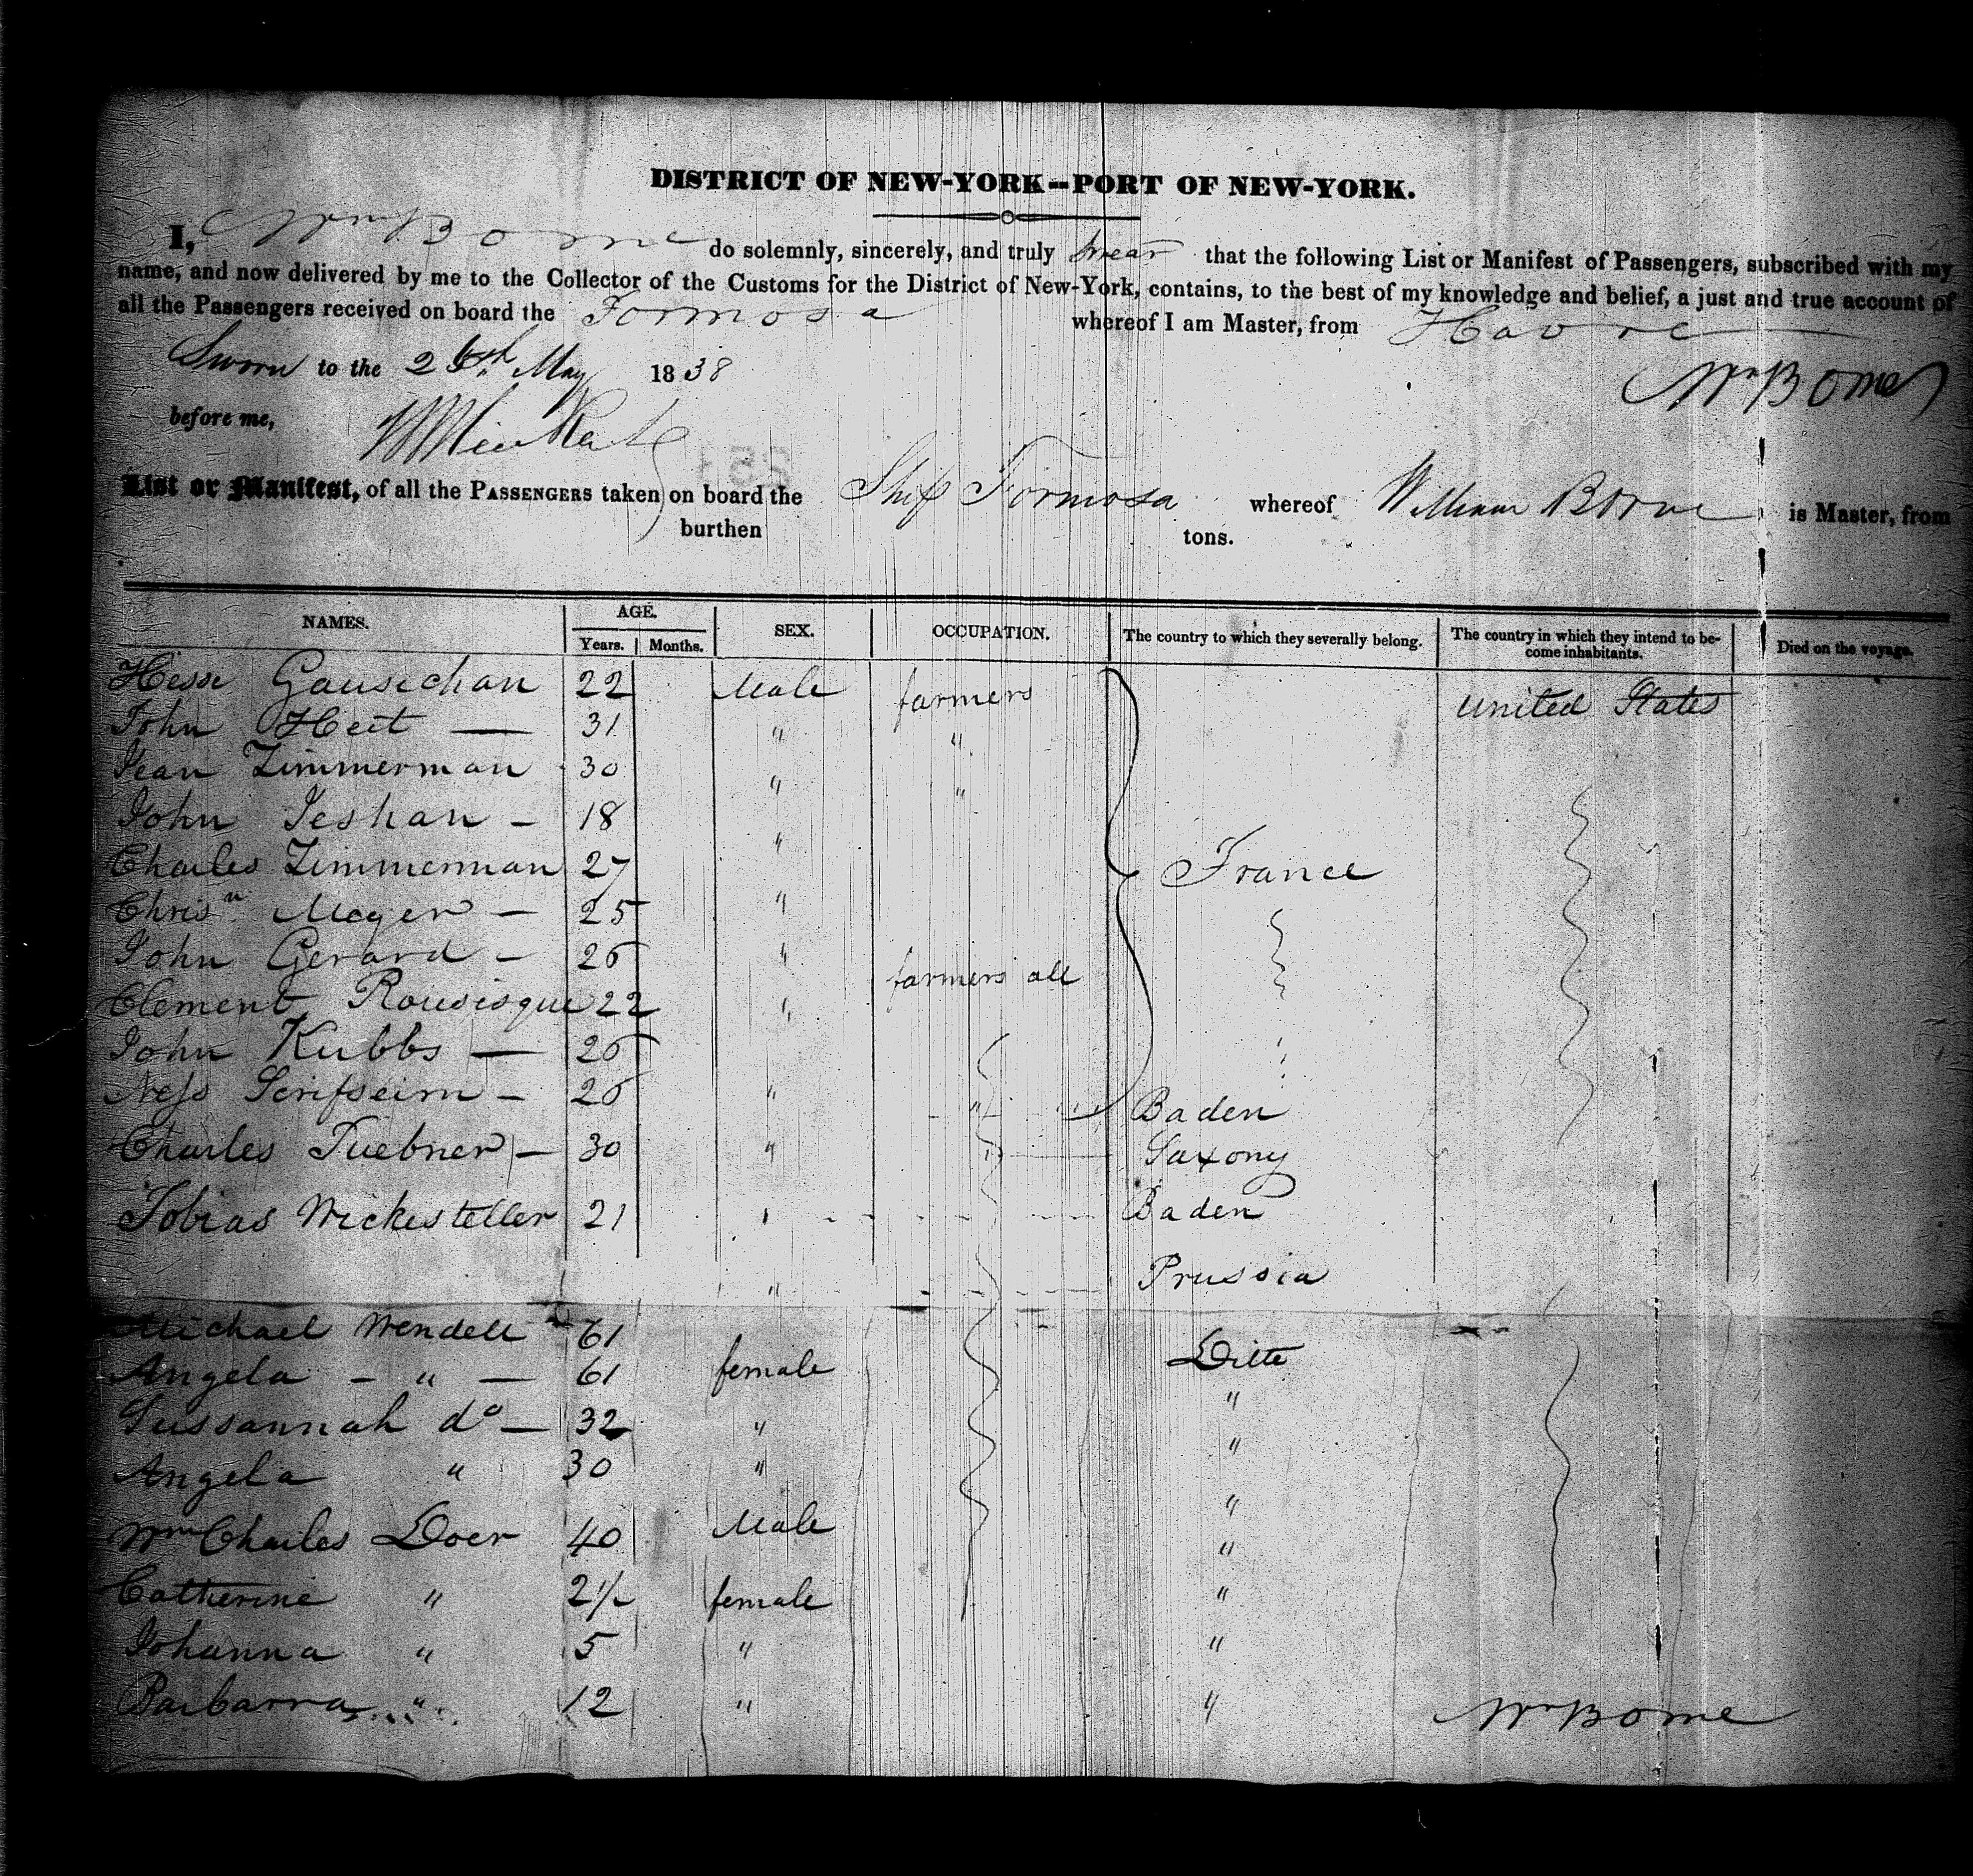 DISTRICT OF NEW-YORK--PORT OF NEW-YORK.
I, Wm Borne do solemnly, sincerely, and truly swear that the following List or Manifest of Passengers, subscribed with my
name, and now delivered by me to the Collector of the Customs for the District of New-York, contains, to the best of my knowledge and belief, a just and true account of
all the Passengers received on board the Formosa whereof I am Master, from Havre
Sworn to the 26th May 1838
Wm Borne
before me,
List or Manifest, of all the PASSENGERS taken on board the Ship Formosa whereof William Borne is Master, from
burthen tons.
NAMES. AGE. SEX. OCCUPATION. The country to which they severally belong. The country in which they intend to become inhabitants. Died on the voyage.
Years. Months.
Hesse Gausechan 22 Male farmers United States
John Heit — 31 " "
Jean Zimmerman 30 " "
John Jeshan - 18 "
Charles Zimmerman 27 France
Chrisn Meyer — 25 "
John Gerard - 26 " farmers all
Clement Rousisque 22 "
John Kubbs — 26
Ness - 26 " " Baden
Charles Tuebner — 30 " " Saxony
Tobias Wickesteller 21 " Baden
" Prussia
Michael Wendell 61
Angela - " — 61 female Ditto
Sussannah do — 32 " "
Angela " 30 " "
Wm Charles Doer 40 Male "
"
Catherine " 2½ female "
Johanna " 5 " "
Barbarra " 12 " "
Wm Borne